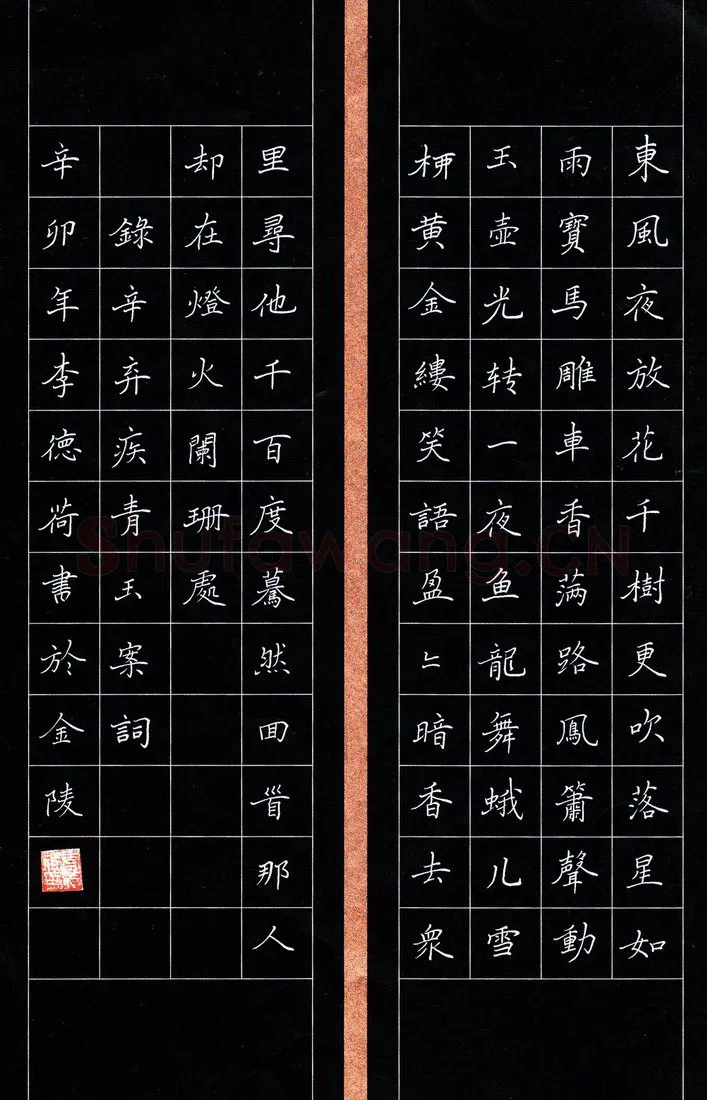 東風夜放花千樹更吹落星如
雨寶馬雕車香满路鳳簫聲動
玉壺光转一夜鱼龍舞蛾儿雪
柳黄金縷笑語盈〻暗香去衆
里尋他千百度驀然回首那人
却在燈火闌珊處
錄辛弃疾青玉案詞
辛卯年李德荷書於金陵
Shufawang.CN